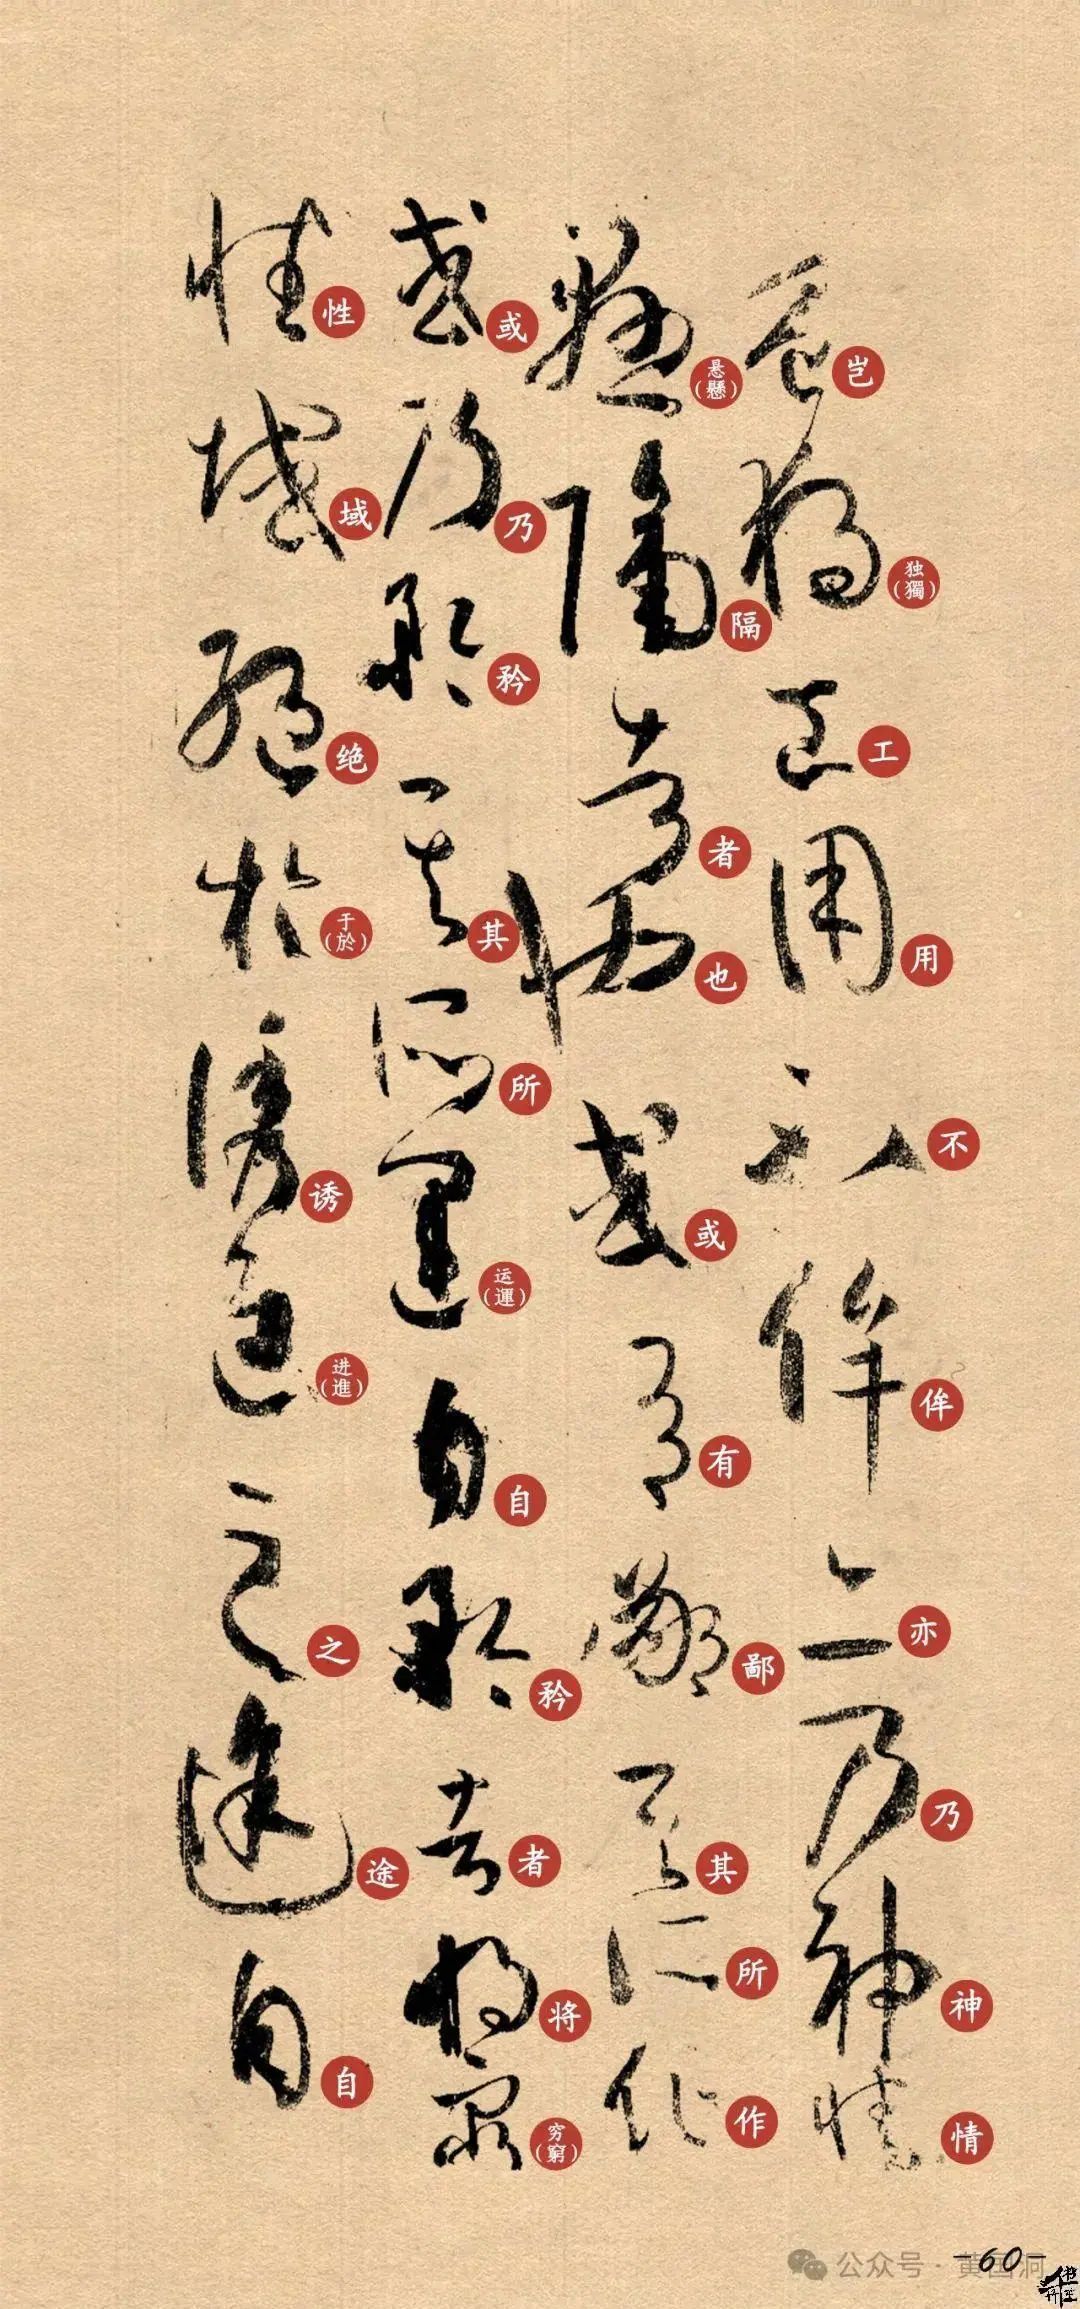 岂独(獨)工用不侔亦乃神情
悬(懸)隔者也或有鄙其所作
或乃矜其所运(運)自矜者将穷(窮)
性域绝于(於)诱进(進)之途自
-60-
公众号·黄国洞